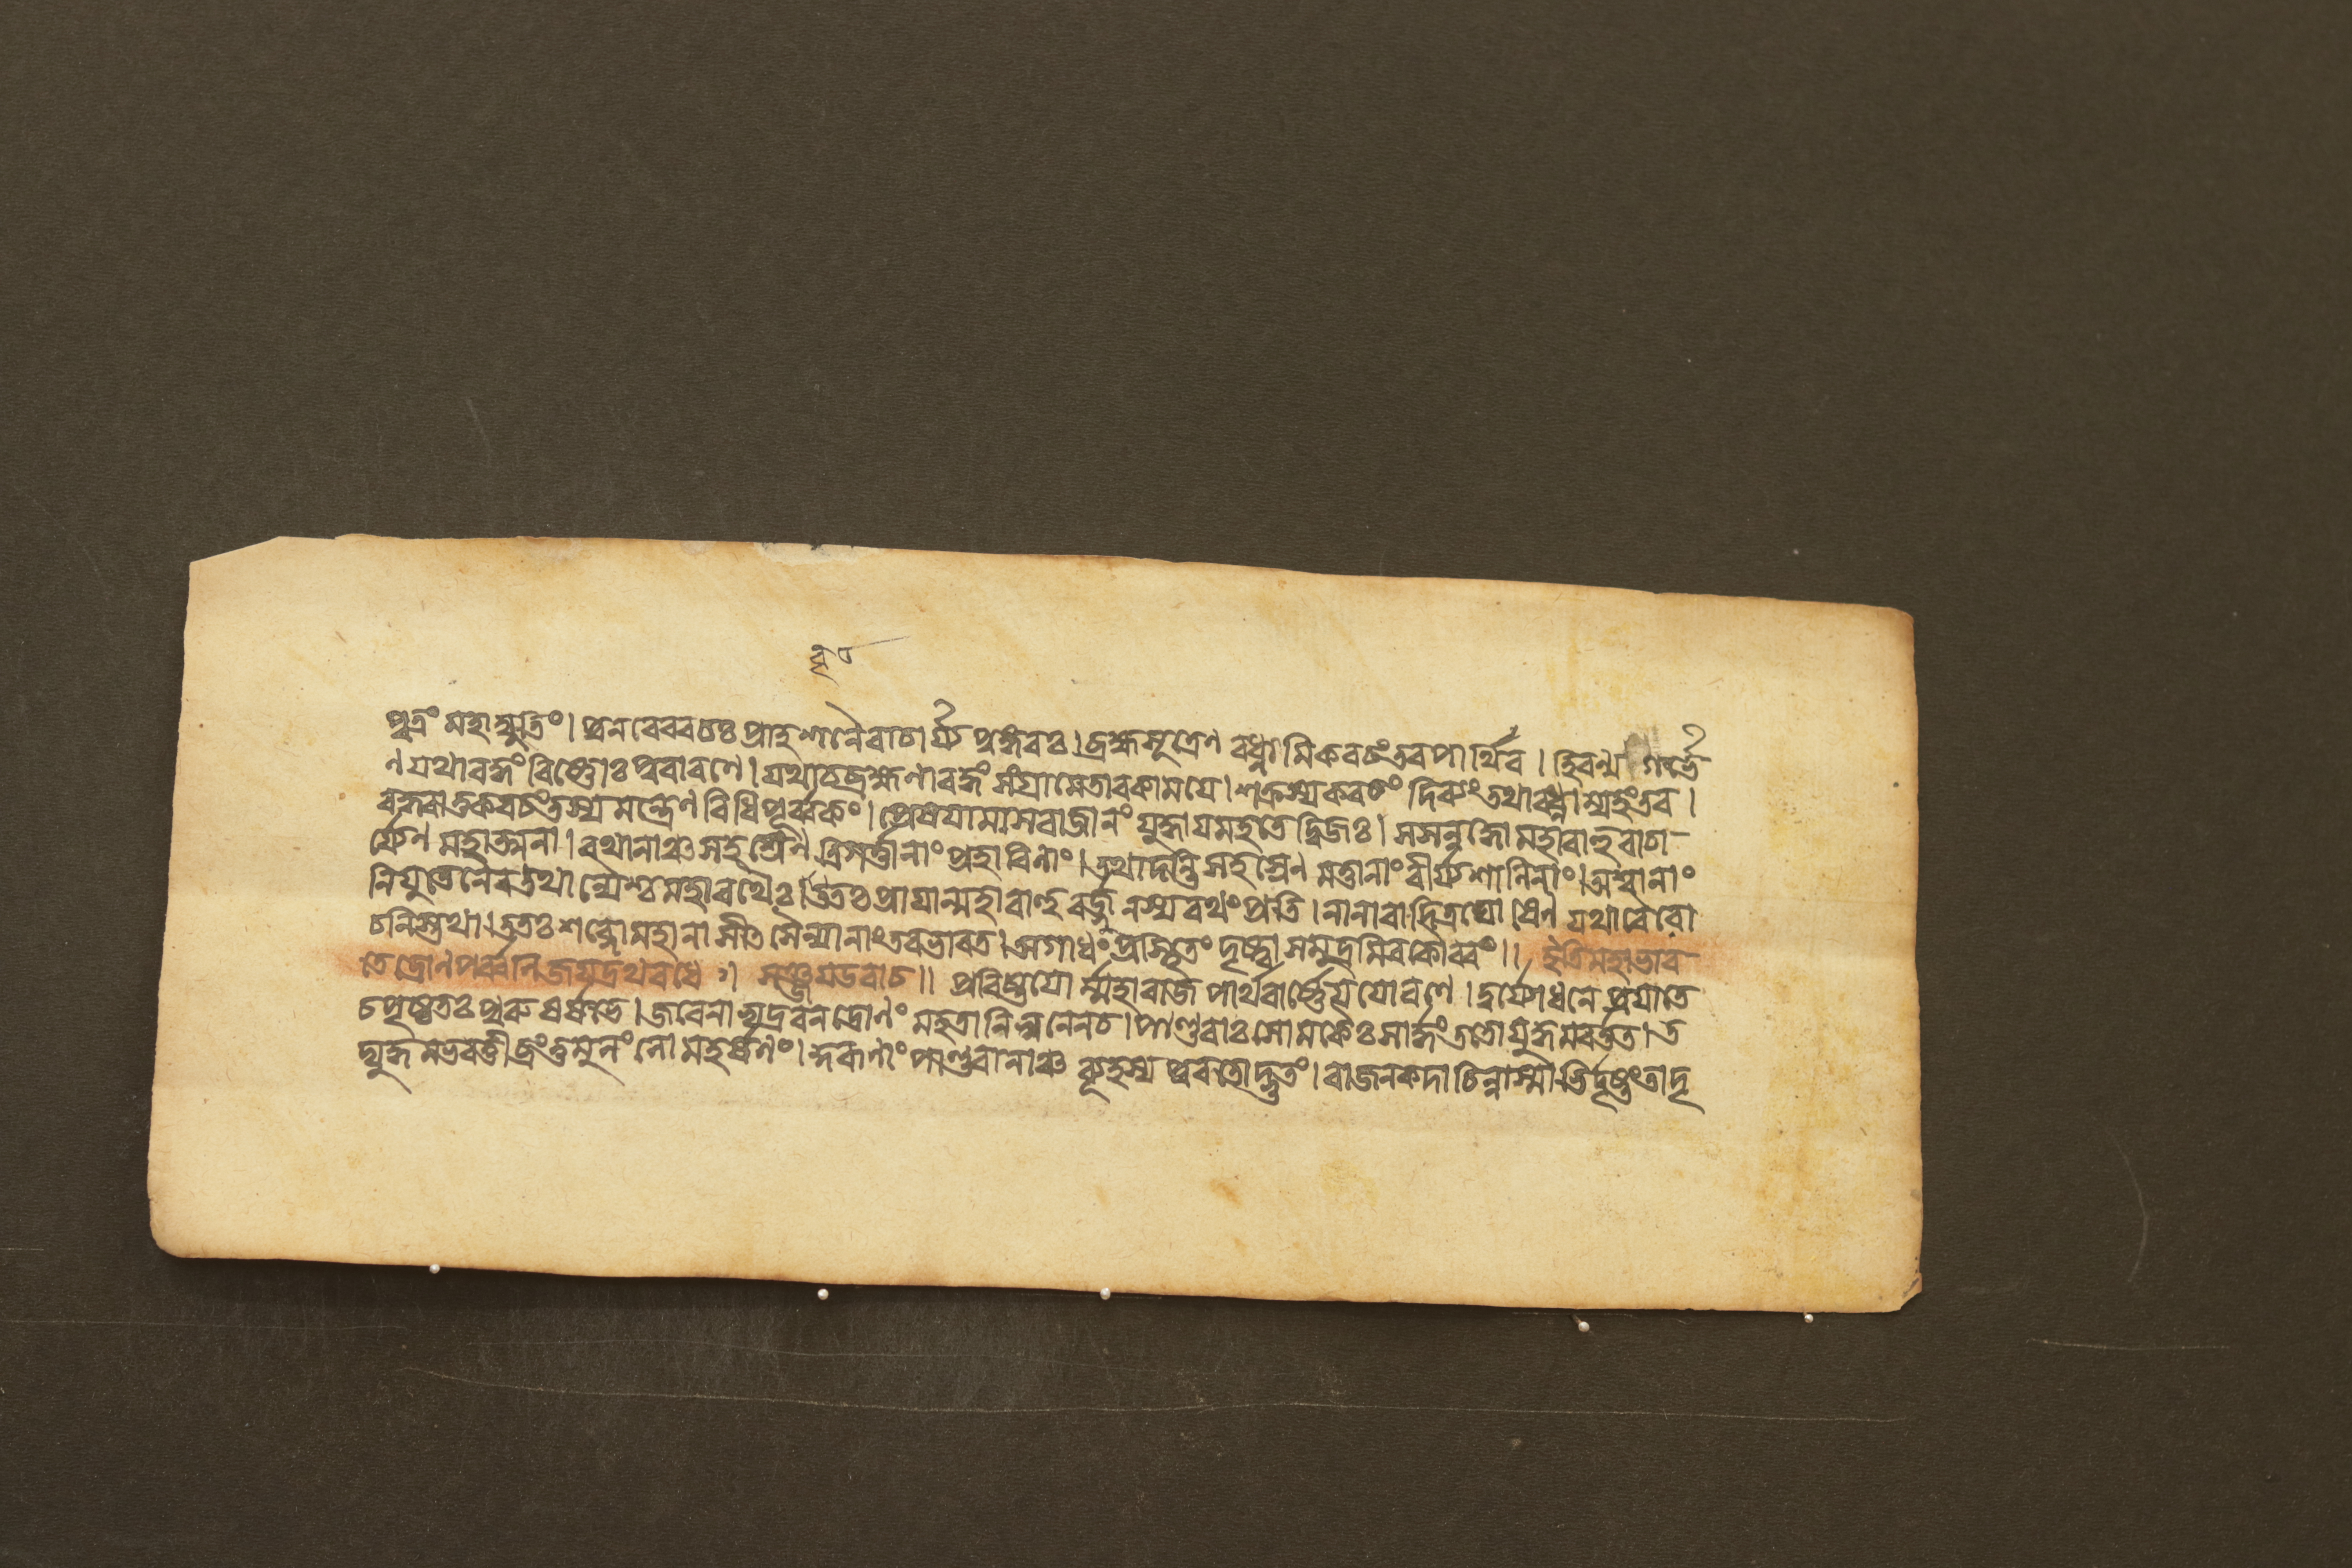 পুত্রং মহাদ্যুতিং। পুনরেববচঃ প্রাহশনৈরাচার্য্য পুঙ্গবঃ। ব্রহ্মসূত্রেণ বধ্নামিকবচংতবপার্থিব। হিরণ্য গর্ভে
ণ যথাবদ্ধং বিষ্ণোঃ পুরারণে। যথাচব্রহ্মণাবদ্ধং সংগ্রামেতারকাময়ে। শক্রস্যকবচং দিব্যংতথাবধ্নাম্যহংতব।
বদ্ধ্বাতুকবচংতস্য মন্ত্রেণ বিধিপূর্ব্বকং। প্রেষযামাসরাজানং যুদ্ধাযমহতেদ্বিজঃ। সসন্নদ্ধোমহাবাহুরাচা-
র্য্যেণ মহাত্মনা। রথানাঞ্চসহস্রেণ ত্রিগর্ত্তানাং প্রহারিণাং। তথাদন্তিসহস্রেণ মত্তানাংবীর্য্যশালিনাং। অশ্বানাং
নিযুতেনৈবতথান্যৈশ্চমহারথৈঃ। বৃতঃপ্রাযান্মহাবাহুরর্জ্জুনস্যরথংপ্রতি। নানাবাদিত্রঘোষেণ যথাবৈরো
চনিস্তথা। ততঃশব্দোমহানাসীৎসৈন্যানাংতবভারত। অগাধংপ্রস্থিতংদৃষ্ট্বাসমুদ্রমিবকৌরবং॥ ইতিমহাভার-
তেদ্রোণপর্ব্বনিজযদ্রথবধে ॥ সঞ্জযউবাচ॥ প্রবিষ্টযোর্ম্মহারাজপার্থবার্ষ্ণেযযোরণে। দুর্যোধনেপ্রযাতে
চপৃষ্ঠতঃপুরুষর্ষভে। জবেনাভ্যদ্রবনদ্রোণং মহতানিস্বনেনচ। পাণ্ডবাঃসোমকৈঃসার্দ্ধংততোযুদ্ধমবর্ত্তত। ত
দ্যুদ্ধমভবত্তীব্রংতুমুলংলোমহর্ষণং। কুরূণাংপাণ্ডবানাঞ্চ ব্যূহস্য পুরতোদ্ভুতং। রাজনকদাচিন্নাস্মাভির্দৃষ্টংতাদৃ